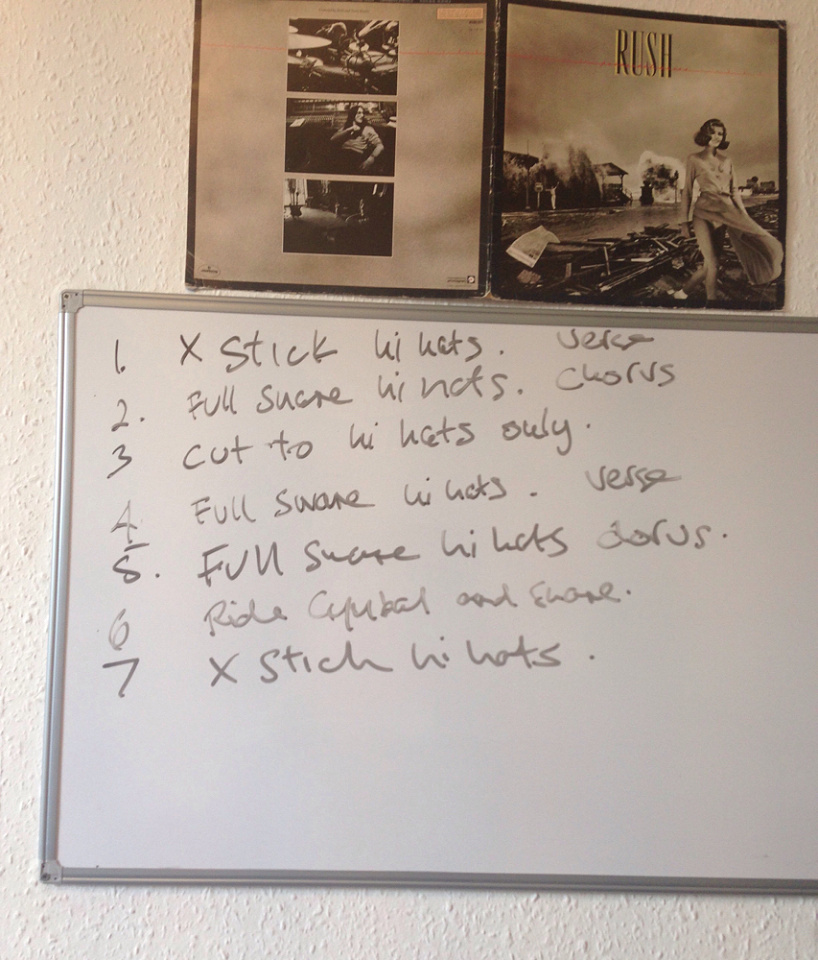 RUSH
1. X Stick hi hats. Verse
2. Full Snare hi hats. Chorus
3 Cut to hi hats only.
4 Full Snare hi hats. Verse
5. Full Snare hi hats Chorus.
6 Ride Cymbal and Snare.
7 X Stick hi hats.